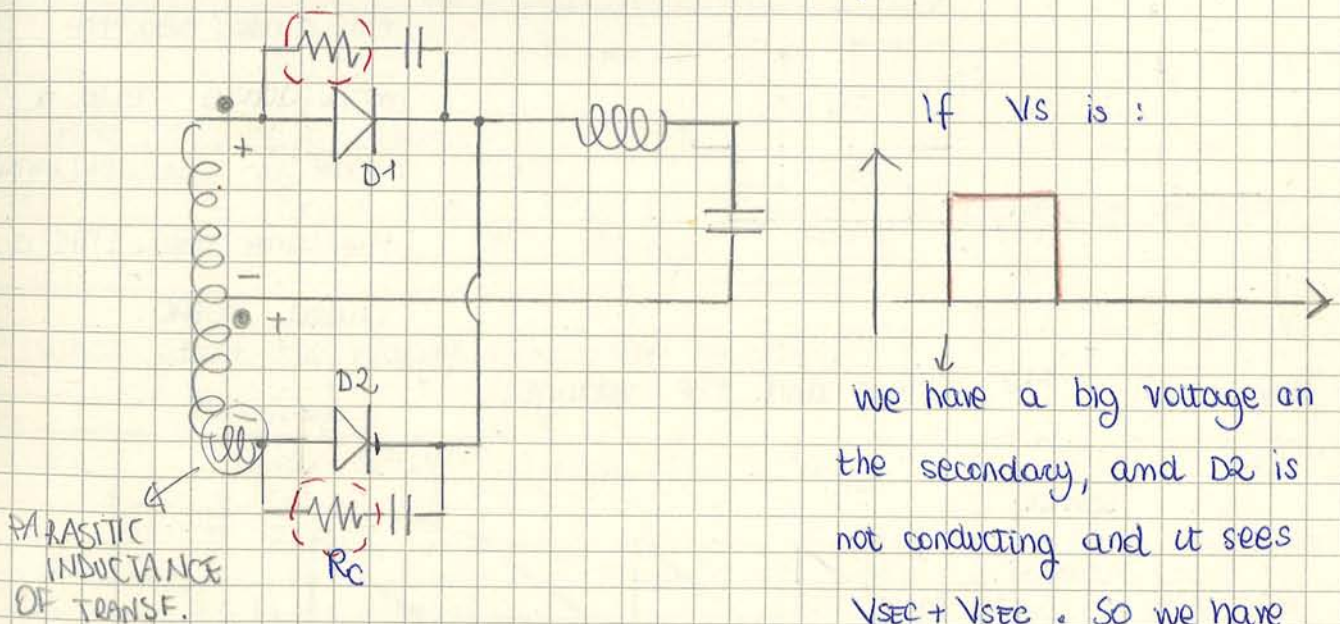 +
D1
-
+
D2
-
PARASITIC
INDUCTANCE
OF TRANSF.
RC
If VS is :
we have a big voltage on
the secondary, and D2 is
not conducting and it sees
VSEC + VSEC . So we have